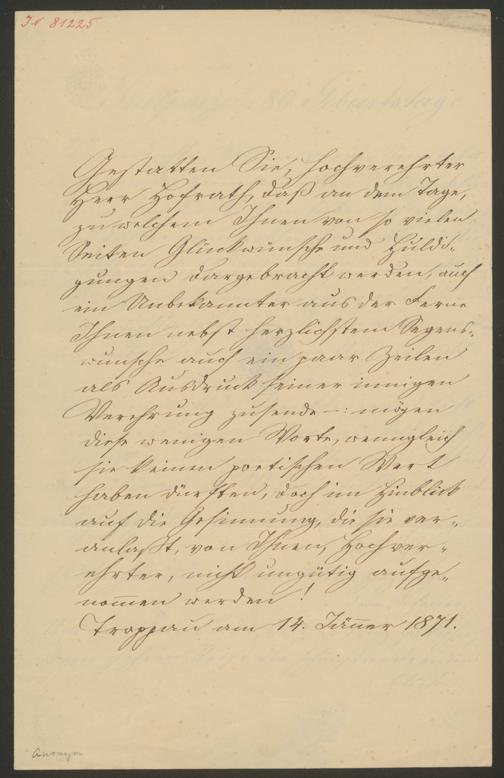 IN 81225
Gestatten Sie, hochverehrter
Herr Hofrath, daß an dem Tage,
zu welchem Ihnen von so vielen
Seiten Glückwünsche und Huldi-
gungen dargebracht werden, auch
ein Unbekannter aus der Ferne
Ihnen nebst herzlichstem Segens-
wunsche auch ein paar Zeilen
als Ausdruck seiner innigen
Verehrung zusende –: mögen
diese wenigen Worte, wenngleich
sie keinen poetischen Wert
haben dürften, doch im Hinblick
auf die Gesinnung, die sie ver-
anlaßt, von Ihnen, Hochver-
ehrter, nicht ungütig aufge-
nommen werden!
Troppau am 14. Jänner 1871.
Anonym